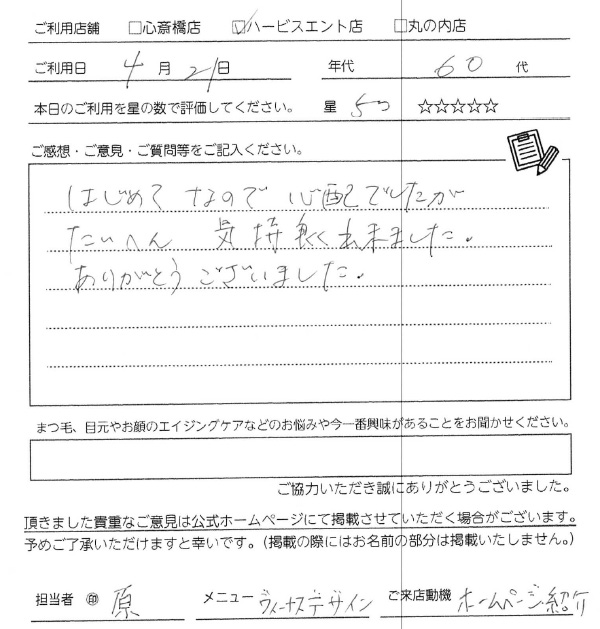 ご利用店舗 □心斎橋店 ☑ハービスエント店 □丸の内店
ご利用日 4月21日 年代 60代
本日のご利用を星の数で評価してください。 星 5つ ☆☆☆☆☆
ご感想・ご意見・ご質問等をご記入ください。
はじめてなので心配でしたが
たいへん 気持良く出来ました。
ありがとうございました。
まつ毛、目元やお顔のエイジングケアなどのお悩みや今一番興味があることをお聞かせください。
ご協力いただき誠にありがとうございました。
頂きました貴重なご意見は公式ホームページにて掲載させていただく場合がございます。
予めご了承いただけますと幸いです。(掲載の際にはお名前の部分は掲載いたしません。)
担当者 ㊞ 原 メニュー ヴィーナスデザイン ご来店動機 ホームページ紹介